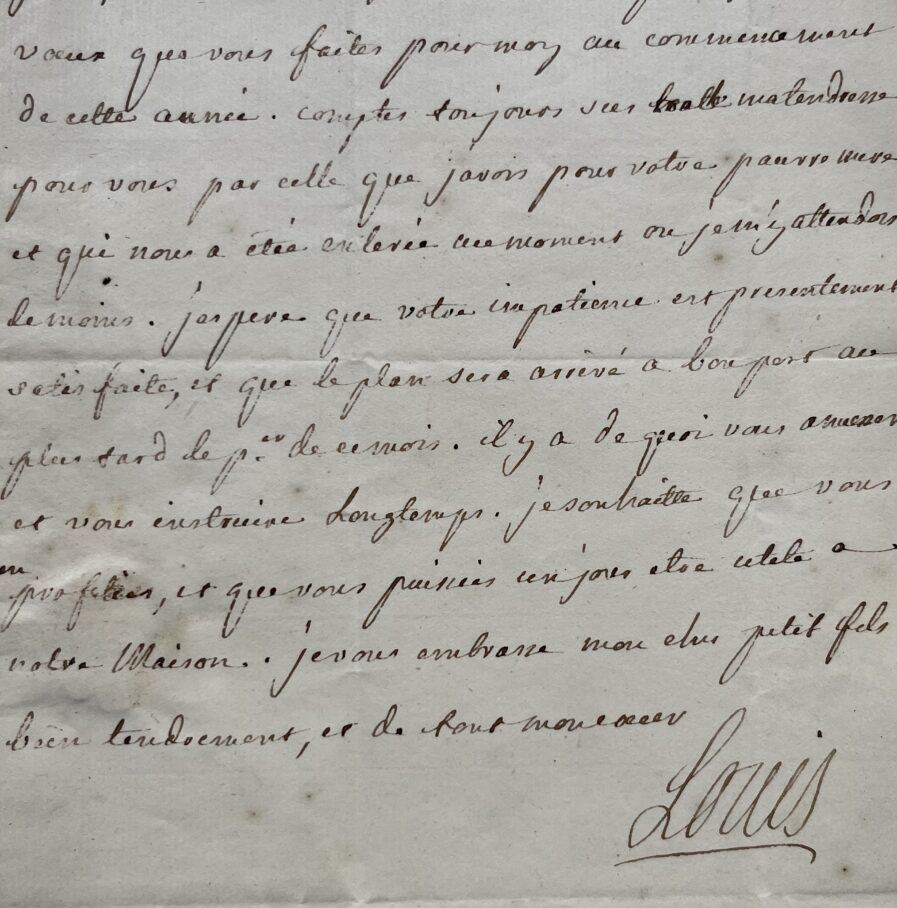 vœux que vous faites pour moy au commencement
de cette année. comptes toujours sur ma tendresse
pour vous par celle que javois pour votre pauvre mere
et qui nous a étée enlevée au moment ou je m'y attendois
de moins. j'espere que votre impatience est presentement
satisfaite, et que le plan sera arrivé a bon port au
plus tard le p.er de ce mois. il y a de quoi vous amuser
et vous instruire Longtemps. je souhaitte que vous
en profities, et que vous puissies un jour etre utile a
votre Maison. je vous embrasse mon cher petit fils
bien tendrement, et de tout mon cœur
Louis